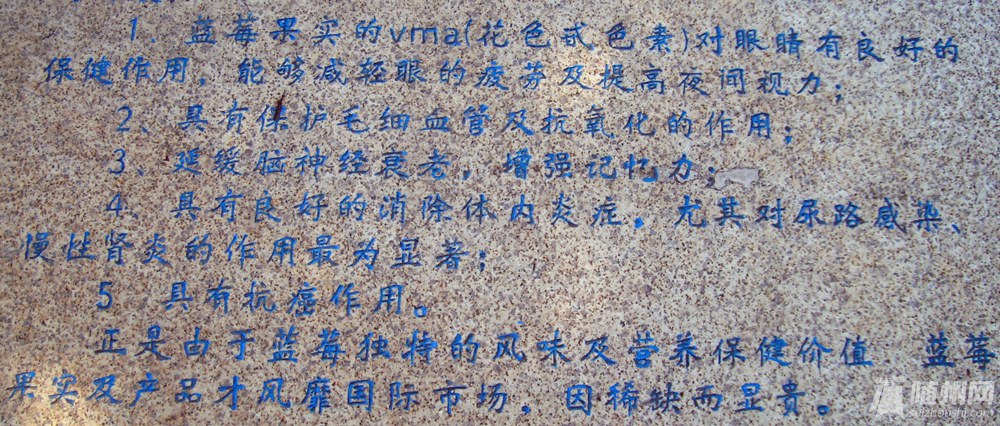 1、蓝莓果实的vma(花色甙色素)对眼睛有良好的
保健作用，能够减轻眼的疲劳及提高夜间视力；
2、具有保护毛细血管及抗氧化的作用；
3、延缓脑神经衰老，增强记忆力；
4、具有良好的消除体内炎症。尤其对尿路感染、
慢性肾炎的作用最为显著；
5 具有抗癌作用。
正是由于蓝莓独特的风味及营养保健价值 蓝莓
果实及产品才风靡国际市场。因稀缺而显贵。
随州网
suizhoushi.com